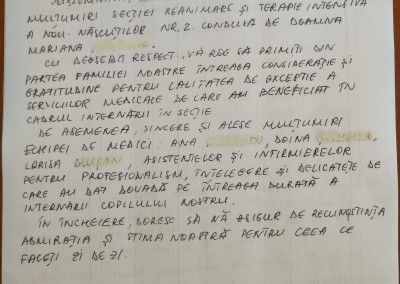 MULȚUMIRI SECȚIEI REANIMARE ȘI TERAPIE INTENSIVĂ
A NOU-NĂSCUȚILOR NR. 2 CONDUSĂ DE DOAMNA
MARIANA
CU DEOSEBIT RESPECT, VĂ ROG SĂ PRIMIȚI DIN
PARTEA FAMILIEI NOASTRE ÎNTREAGA CONSIDERAȚIE ȘI
GRATITUDINE PENTRU CALITATEA DE EXCEPȚIE A
SERVICIILOR MEDICALE DE CARE AM BENEFICIAT ÎN
CADRUL INTERNĂRII ÎN SECȚIE.
DE ASEMENEA, SINCERE ȘI ALESE MULȚUMIRI
ECHIPEI DE MEDICI: ANA DOINA
LARISA , ASISTENTELOR ȘI INFIRMIERELOR
PENTRU PROFESIONALISM, ÎNȚELEGERE ȘI DELICATEȚE DE
CARE AU DAT DOVADĂ PE ÎNTREAGA DURATĂ A
INTERNĂRII COPILULUI NOSTRU.
ÎN ÎNCHEIERE, DORESC SĂ VĂ ASIGUR DE RECUNOȘTINȚA
ADMIRAȚIA ȘI STIMA NOASTRĂ PENTRU CEEA CE
FACEȚI ZI DE ZI.